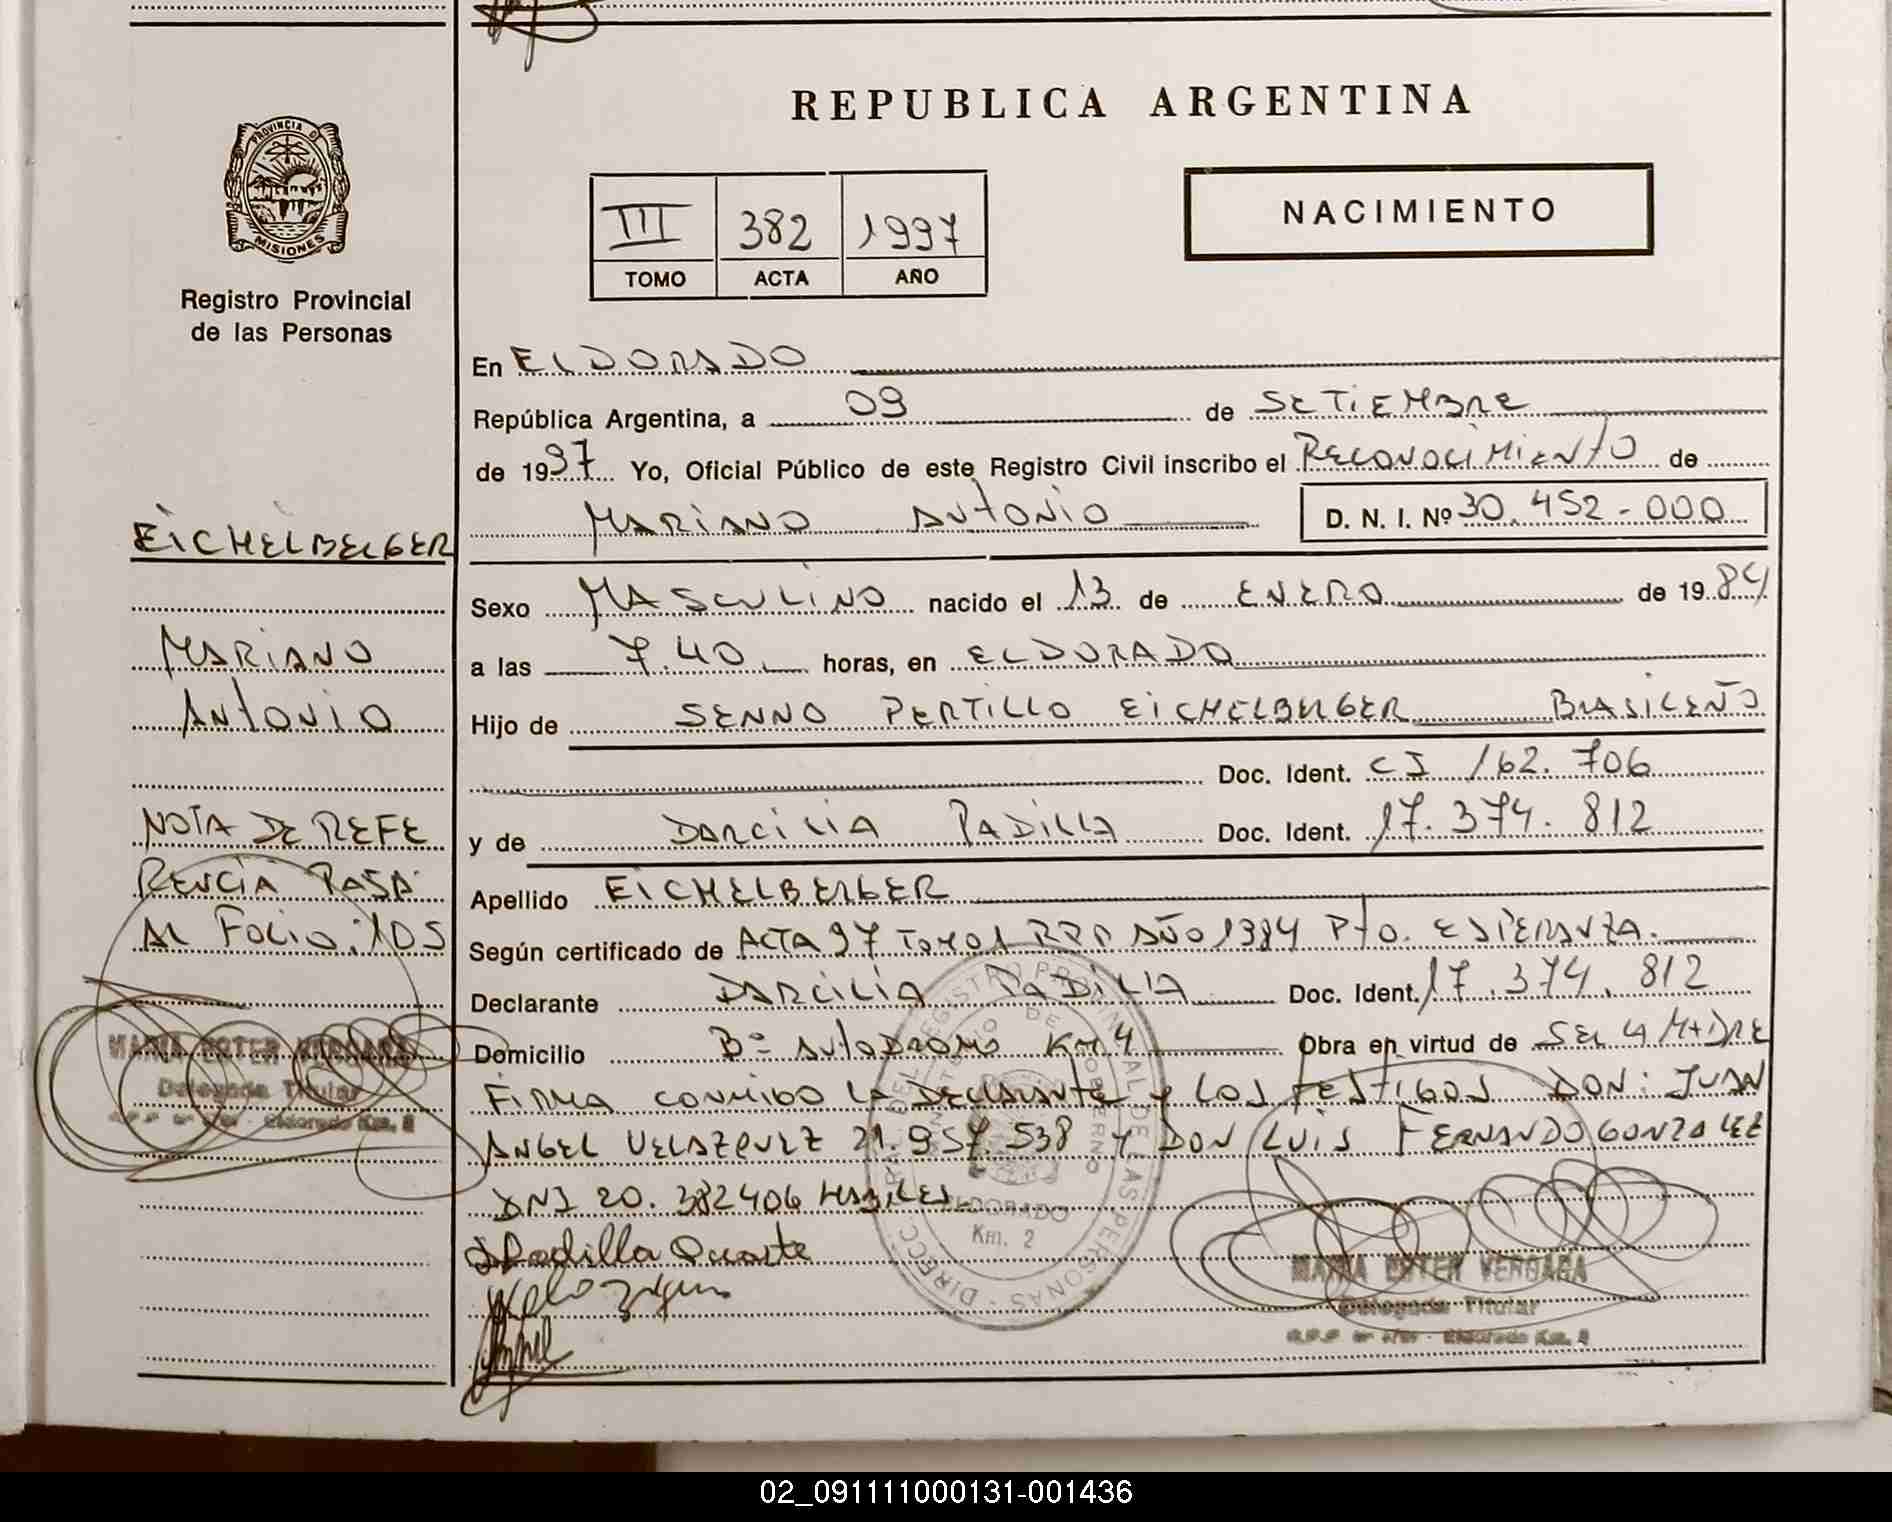 REPUBLICA ARGENTINA
PROVINCIA D
MISIONES
Registro Provincial
de las Personas
III 382 1997
TOMO ACTA AÑO
NACIMIENTO
En ELDORADO
República Argentina, a 09 de SETIEMBRE
de 1997 Yo, Oficial Público de este Registro Civil inscribo el RECONOCIMIENTO de
MARIANO ANTONIO D. N. I. Nº 30.452-000
EICHELBERGER
Sexo MASCULINO nacido el 13 de ENERO de 1984
MARIANO
a las 7.40 horas, en ELDORADO
ANTONIO
Hijo de SENNO PERTILLO EICHELBERGER BRASILEÑO
Doc. Ident. CI 162.706
NOTA DE REFE
y de DARCILIA PADILLA Doc. Ident. 17.374.812
RENCIA PASA
Apellido EICHELBERGER
AL FOLIO: 105
Según certificado de ACTA 97 TOMO 1 RPP AÑO 1984 Pto. ESPERANZA.
Declarante DARCILIA PADILLA Doc. Ident. 17.374.812
Domicilio Bº AUTODROMO KM 4 Obra en virtud de SER LA MADRE
FIRMA CONMIGO LA DECLARANTE y LOS TESTIGOS DON: JUAN
ANGEL VELAZQUEZ 21.957.538 y DON LUIS FERNANDO GONZALEZ
DNI 20.382406 HABILES.
DPadilla Duarte
MARIA ESTER VERGARA
Delegada Titular
Eldorado Km. 2
DIRECC. GRAL. DEL REGISTRO PROVINCIAL DE LAS PERSONAS
MINISTERIO DE GOBIERNO
ELDORADO
Km. 2
MARIA ESTER VERGARA
Delegada Titular
Eldorado Km. 2
02_091111000131-001436